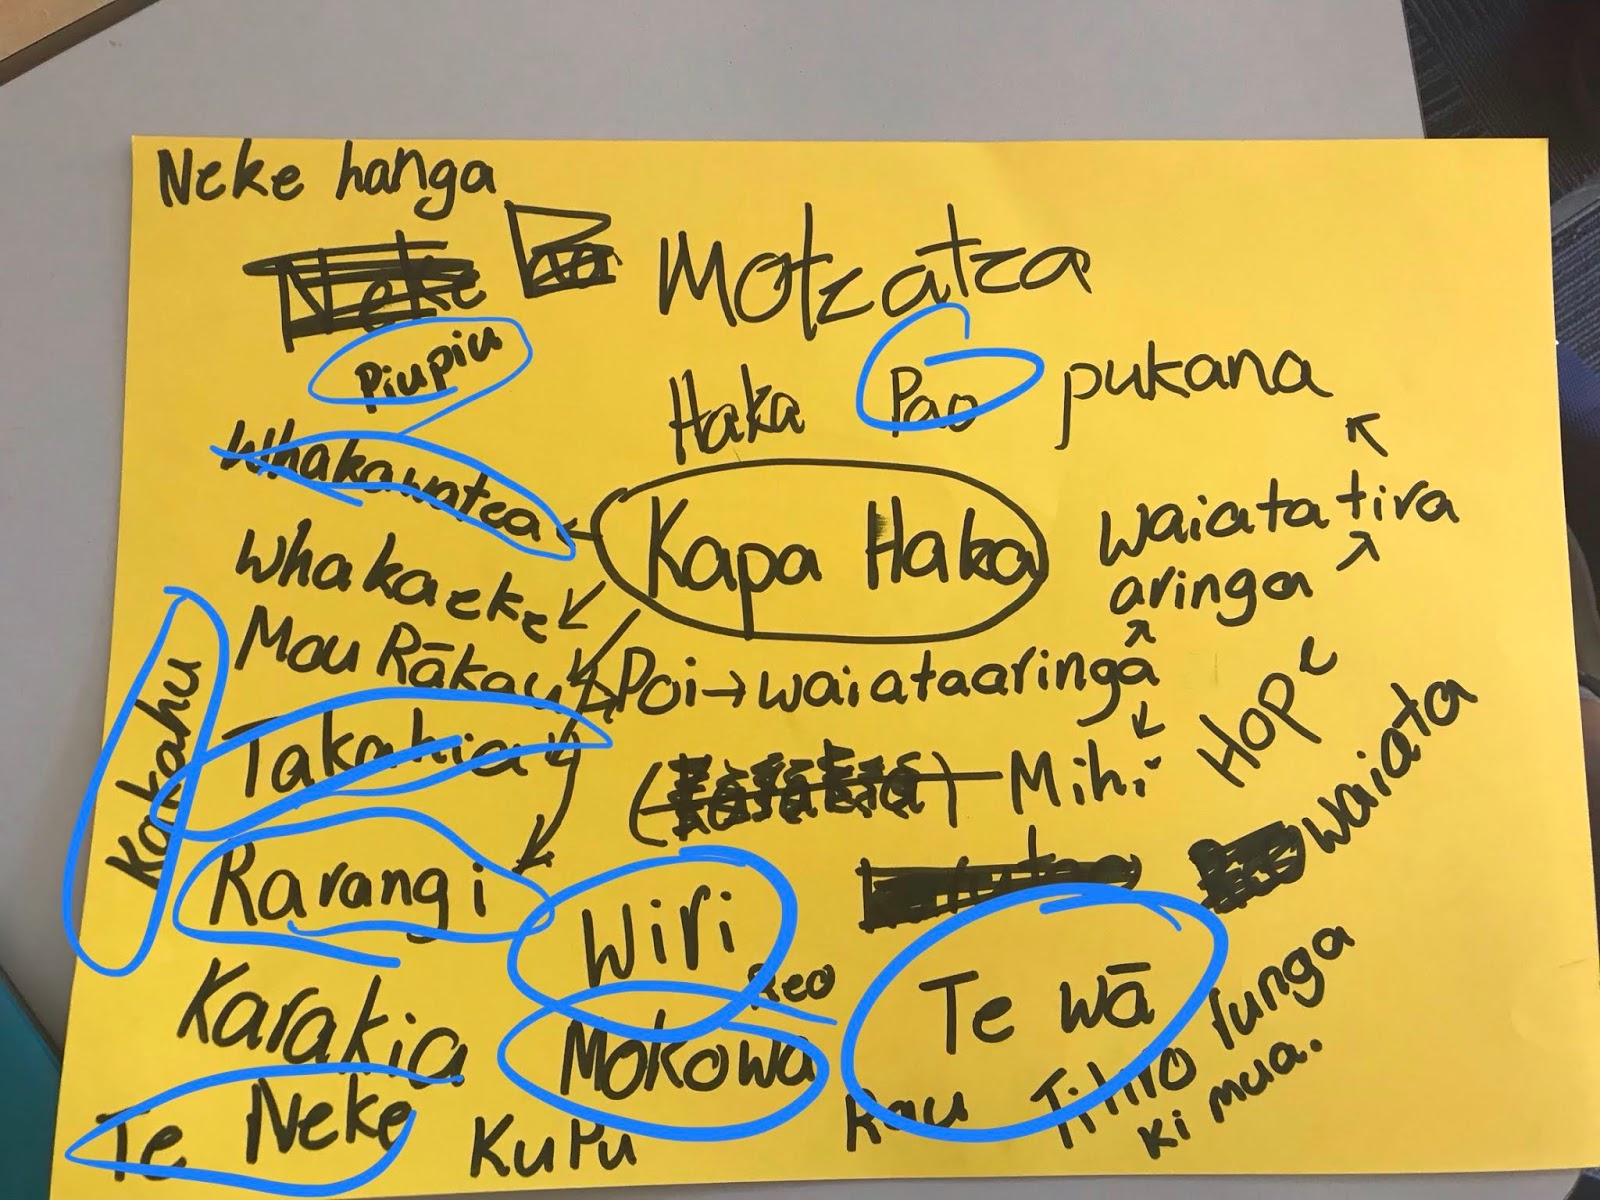 Neke hanga
Neke
Moteatea
Piupiu
Haka
Pao
pukana
Whakawatea
Kapa Haka
waiata tira
whakaeke
aringa
Mau Rākau
Poi→waiataaringa
Hope
Kakahu
Takahia
Mihi
waiata
Rarangi
Wiri
Reo
Te wā
Karakia
Mokowa
Rau
Titiro runga
ki mua.
Te Neke
Kupu